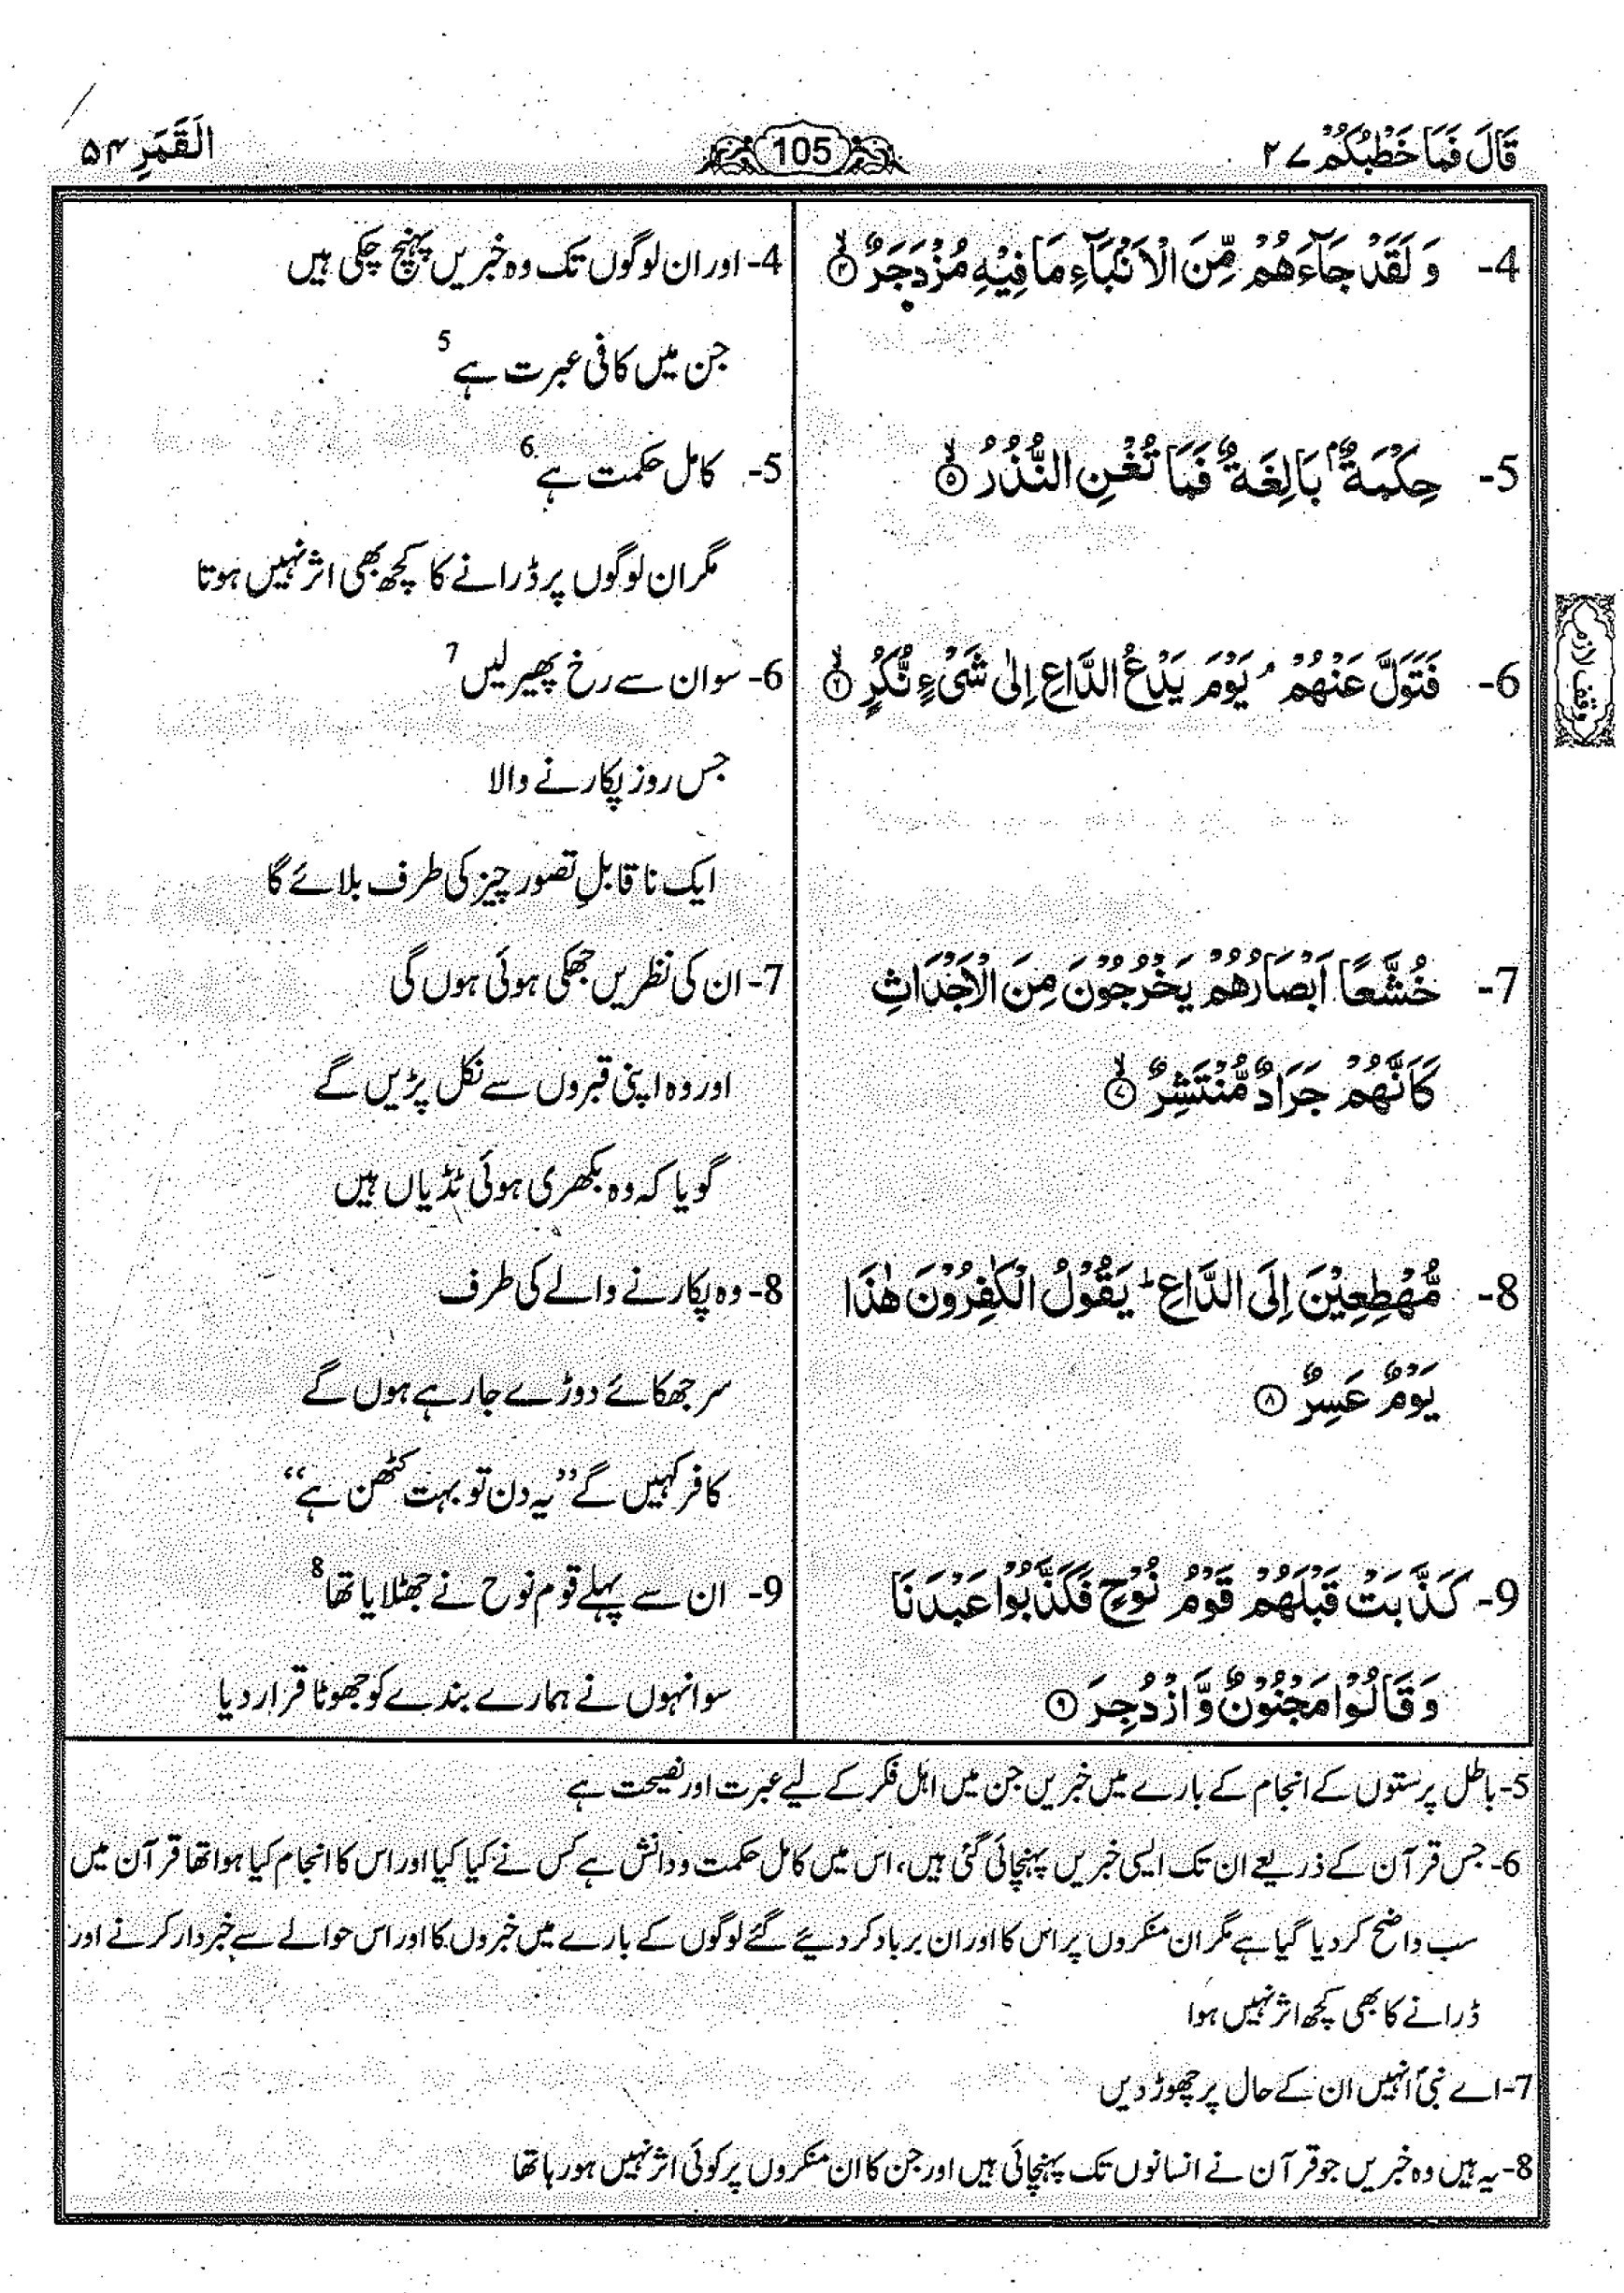 قَالَ فَمَا خَطْبُكُمْ ۲۷
105
الْقَمَرِ ۵۴
4- وَ لَقَدْ جَآءَهُمْ مِّنَ الْاَنْۢبَآءِ مَا فِيْهِ مُزْدَجَرٌ ۙ﴿۴﴾
5- حِكْمَةٌۢ بَالِغَةٌ فَمَا تُغْنِ النُّذُرُ ۙ﴿۵﴾
6- فَتَوَلَّ عَنْهُمْ ۘ يَوْمَ يَدْعُ الدَّاعِ اِلٰى شَىْءٍ نُّكُرٍ ۙ﴿۶﴾
وقف لازم
7- خُشَّعًا اَبْصَارُهُمْ يَخْرُجُوْنَ مِنَ الْاَجْدَاثِ
كَاَنَّهُمْ جَرَادٌ مُّنْتَشِرٌ ۙ﴿۷﴾
8- مُّهْطِعِيْنَ اِلَى الدَّاعِ ؕ يَقُوْلُ الْكٰفِرُوْنَ هٰذَا
يَوْمٌ عَسِرٌ ﴿۸﴾
9- كَذَّبَتْ قَبْلَهُمْ قَوْمُ نُوْحٍ فَكَذَّبُوْا عَبْدَنَا
وَ قَالُوْا مَجْنُوْنٌ وَّازْدُجِرَ ﴿۹﴾
4- اور ان لوگوں تک وہ خبریں پہنچ چکی ہیں
جن میں کافی عبرت ہے 5
5- کامل حکمت ہے 6
مگر ان لوگوں پر ڈرانے کا کچھ بھی اثر نہیں ہوتا
6- سو ان سے رخ پھیر لیں 7
جس روز پکارنے والا
ایک ناقابلِ تصور چیز کی طرف بلائے گا
7- ان کی نظریں جھکی ہوئی ہوں گی
اور وہ اپنی قبروں سے نکل پڑیں گے
گویا کہ وہ بکھری ہوئی ٹڈیاں ہیں
8- وہ پکارنے والے کی طرف
سر جھکائے دوڑے جا رہے ہوں گے
کافر کہیں گے ”یہ دن تو بہت کٹھن ہے“
9- ان سے پہلے قوم نوح نے جھٹلایا تھا 8
سو انہوں نے ہمارے بندے کو جھوٹا قرار دیا
5- باطل پرستوں کے انجام کے بارے میں خبریں جن میں اہل فکر کے لیے عبرت اور نصیحت ہے
6- جس قرآن کے ذریعے ان تک ایسی خبریں پہنچائی گئی ہیں، اس میں کامل حکمت و دانش ہے کس نے کیا کیا اور اس کا انجام کیا ہوا تھا قرآن میں
سب واضح کر دیا گیا ہے مگر ان منکروں پر اس کا اور ان برباد کر دیئے گئے لوگوں کے بارے میں خبروں کا اور اس حوالے سے خبردار کرنے اور
ڈرانے کا بھی کچھ اثر نہیں ہوا
7- اے نبیؐ انہیں ان کے حال پر چھوڑ دیں
8- یہ ہیں وہ خبریں جو قرآن نے انسانوں تک پہنچائی ہیں اور جن کا ان منکروں پر کوئی اثر نہیں ہو رہا تھا